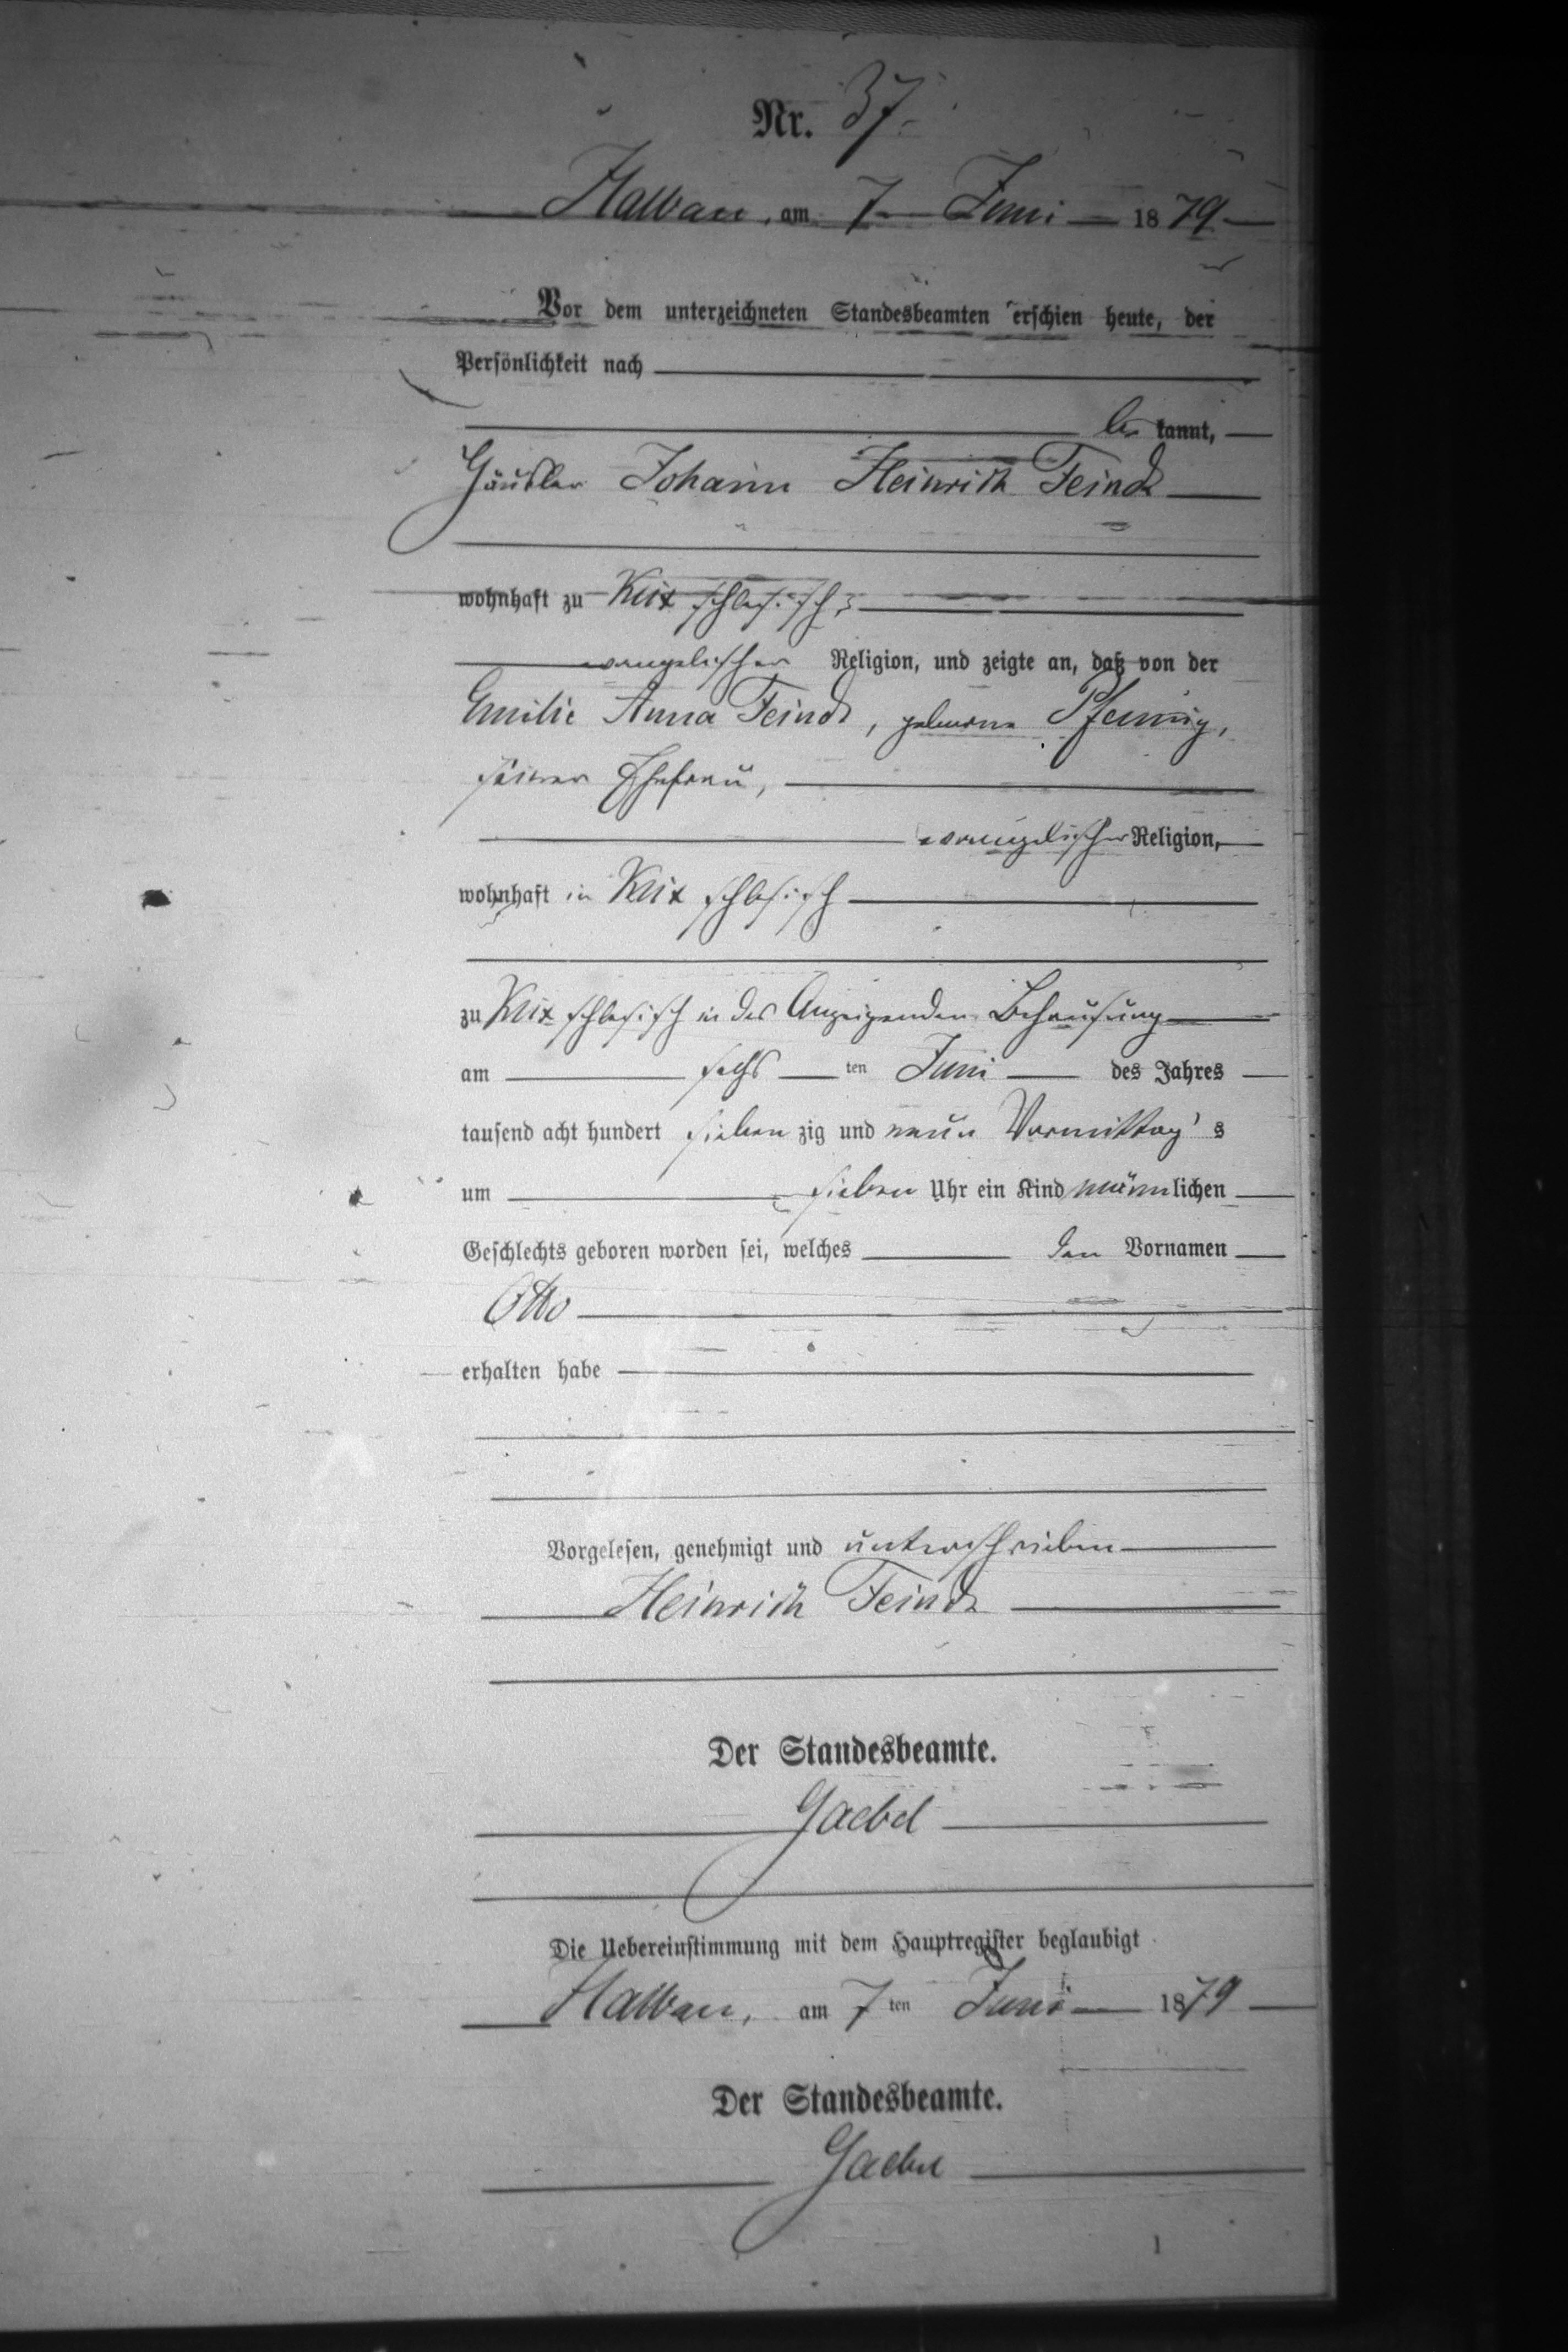 Nr. 37.
Halbau, am 7 Juni 1879
Vor dem unterzeichneten Standesbeamten erschien heute, der
Persönlichkeit nach
be kannt,
Häusler Johann Heinrich Feindt
wohnhaft zu Klix schlesisch,
evangelischer Religion, und zeigte an, daß von der
Emilie Anna Feindt, geborne Pfennig,
seiner Ehefrau,
evangelischer Religion,
wohnhaft in Klix schlesisch
zu Klix schlesisch in des Anzeigenden Behausung
am sechs ten Juni des Jahres
tausend acht hundert sieben zig und neun Vormittag's
um sieben Uhr ein Kind männlichen
Geschlechts geboren worden sei, welches den Vornamen
Otto
erhalten habe
Vorgelesen, genehmigt und unterschrieben
Heinrich Feindt
Der Standesbeamte.
Gaebel
Die Uebereinstimmung mit dem Hauptregister beglaubigt
Halbau, am 7 ten Juni 1879
Der Standesbeamte.
Gaebel